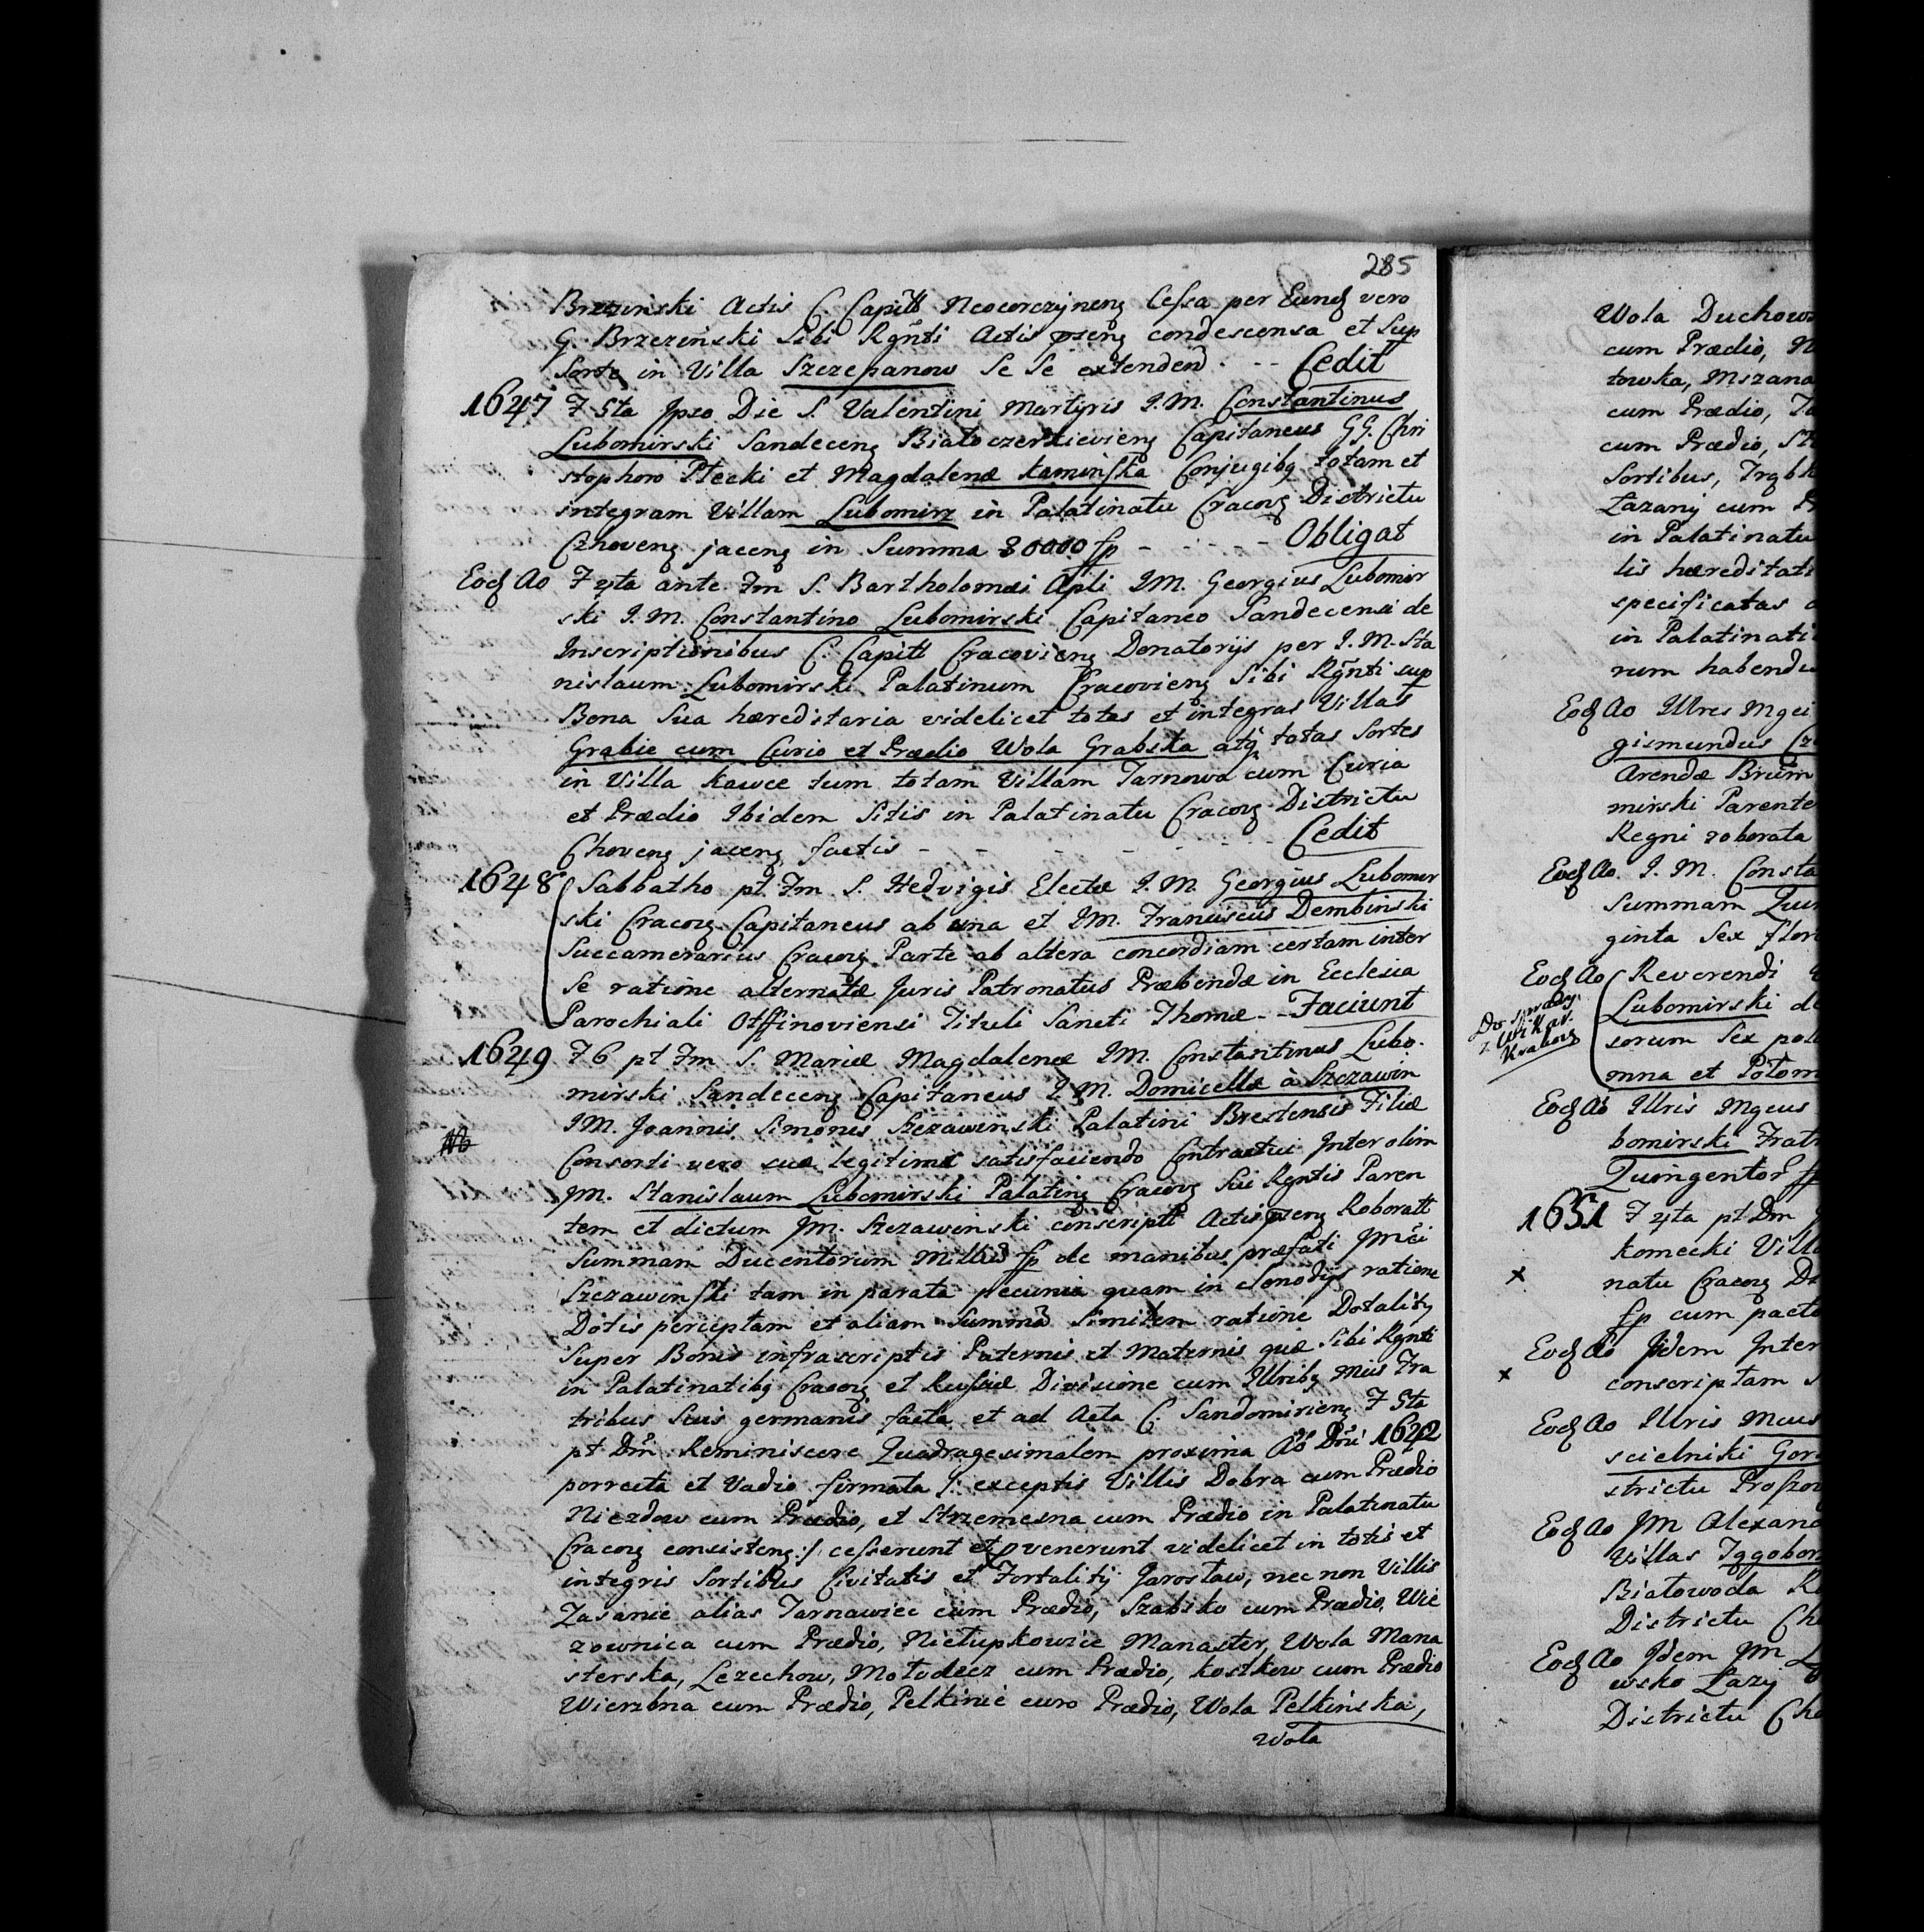 285
Brzezinski Actis C. Capitl Neocorczynens Cessa per Eundq vero
G. Brzezinski Sibi Rgnti Actis psens condescensa et Sup
Sorte in Villa Szczepanow Se Se extendend. -- Cedit
1647 F 5ta Ipso Die S. Valentini Martyris I.M. Constantinus
Lubomirski Sandecens Białoczerkieviens Capitaneus GG. Chri
stophoro Płecki et Magdalenæ Kaminska Conjugibq totam et
integram Villam Lubomirz in Palatinatu Cracovs Districtu
Czhovens jacens in Summa 80000 fp - - - - - Obligat
Eodq Ao F 4ta ante Fm S. Bartholomæi Apli IM. Georgius Lubomir
ski I.M. Constantino Lubomirski Capitaneo Sandecensi de
Inscriptionibus C. Capitl Cracoviens Donatorijs per I.M. Sta
nislaum Lubomirski Palatinum Cracoviens Sibi Rgnti sup
Bona Sua hæreditaria videlicet totas et integras Villas
Grabie cum Curio et Prædio Wola Grabska atq totas Sortes
in Villa Kawce tum totam Villam Tarnowa cum Curia
et Prædio Ibidem Sitis in Palatinatu Cracovs Districtu
Chovens jacens factis - - - - - - - Cedit
1648 Sabbatho pt Fm S. Hedvigis Electæ I.M. Georgius Lubomir
ski Cracovs Capitaneus ab una et IM. Franciscus Dembinski
Succamerarius Cracovs Parte ab altera concordiam certam inter
Se ratione alternatæ Juris Patronatus Præbendæ in Ecclesia
Parochiali Otffinoviensi Tituli Sancti Thomæ -- Faciunt
1649 F 6 pt Fm S. Mariæ Magdalenæ IM. Constantinus Lubo-
mirski Sandecens Capitaneus I.M. Domicellæ à Szczawin
IM. Joannis Simonis Szczawinski Palatini Brestensis Filiæ
Consorti vero suæ legitimæ satisfaciendo Contractui Inter olim
IM. Stanislaum Lubomirski Palatins Cracovs Sui Rgntis Paren
tem et dictum IM. Szczawinski conscriptt Actis psens Roboratt
Summam Ducentorum Millid fp de manibus præfati Jmci
Szczawinski tam in parata pecunia quam in Clenodijs ratione
Dotis perceptam et aliam Summã Similem ratione Dotalitij
Super Bonis infrascriptis Paternis et Maternis quæ Sibi Rgnti
in Palatinatibq Cracovs et Russiæ Divisione cum Illribq Mcis Fra
tribus Suis germanis facta et ad Acta C. Sandomiriens F 5ta
pt Dm Reminiscere Quadragesimalem proxima Ao Dni 1642
porrecta et Vadio firmata /: exceptis Villis Dobra cum Prædio
Niezdow cum Prædio, et Strzemesna cum Prædio in Palatinatu
Cracovs consistens :/ cesserunt et pvenerunt videlicet in totis et
integris Sortibus Civitatis et Fortalitij Jarosław, nec non Villis
Zasanie alias Tarnawiec cum Prædio, Szabsko cum Prædio, Wie
zownica cum Prædio, Nielupkowice Manaster, Wola Mana
sterska, Lezechow, Mołodecz cum Prædio, Kostkow cum Prædio
Wierzbna cum Prædio, Pelkinie curo Prædio, Wola Pelkinska,
Wola
Wola Duchow
cum Prædio, N
towka, Mszana
cum Prædio, T
cum Prædio, St
Sortibus, Trąbk
Łazany cum P
in Palatinatu
lis hæreditati
specificatas
in Palatinati
rum habend
Eodq Ao Illres Mgci
gismundus Cz
Arendæ Brum
mirski Parente
Regni roborata
Eodq Ao. I.M. Consta
Summam Qui
ginta Sex flor
Eodq Ao Reverendi
Do sprawy
z Wikar.
Krakovs
Lubomirski d
sorum Sex pol
mna et Potom
Eodq Ao Illris Mgcus
bomirski Fratr
Quingentor fp
1651 F 4ta pt Dm
komecki Vill
x natu Cracovs D
fp cum pacto
Eodq Ao Idem Inter
x conscriptam
Eodq Ao Illris Mcus
scielniki Gor
strictu Proszov
Eodq Ao IM Alexan
Villas Iggobor
Białowoda R
Districtu Ch
Eodq Ao Idem IM L
wsko Łazy
Districtu Ch